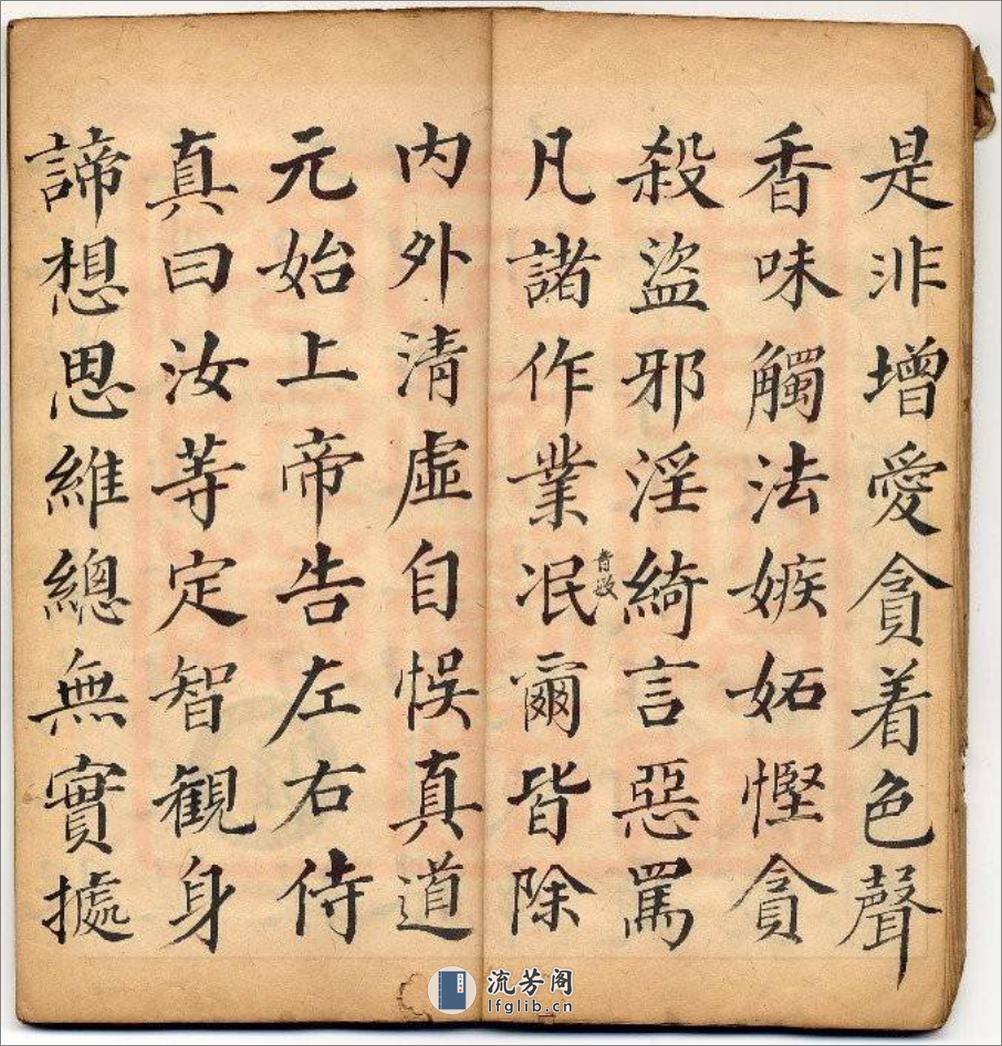 是非增愛貪着色聲
香味觸法嫉妬慳貪
殺盜邪淫綺言惡罵
凡諸作業冺爾皆除
音敃
內外清虛自悞真道
元始上帝告左右侍
真曰汝等定智觀身
諦想思維總無實據
流芳阁
lfglib.cn